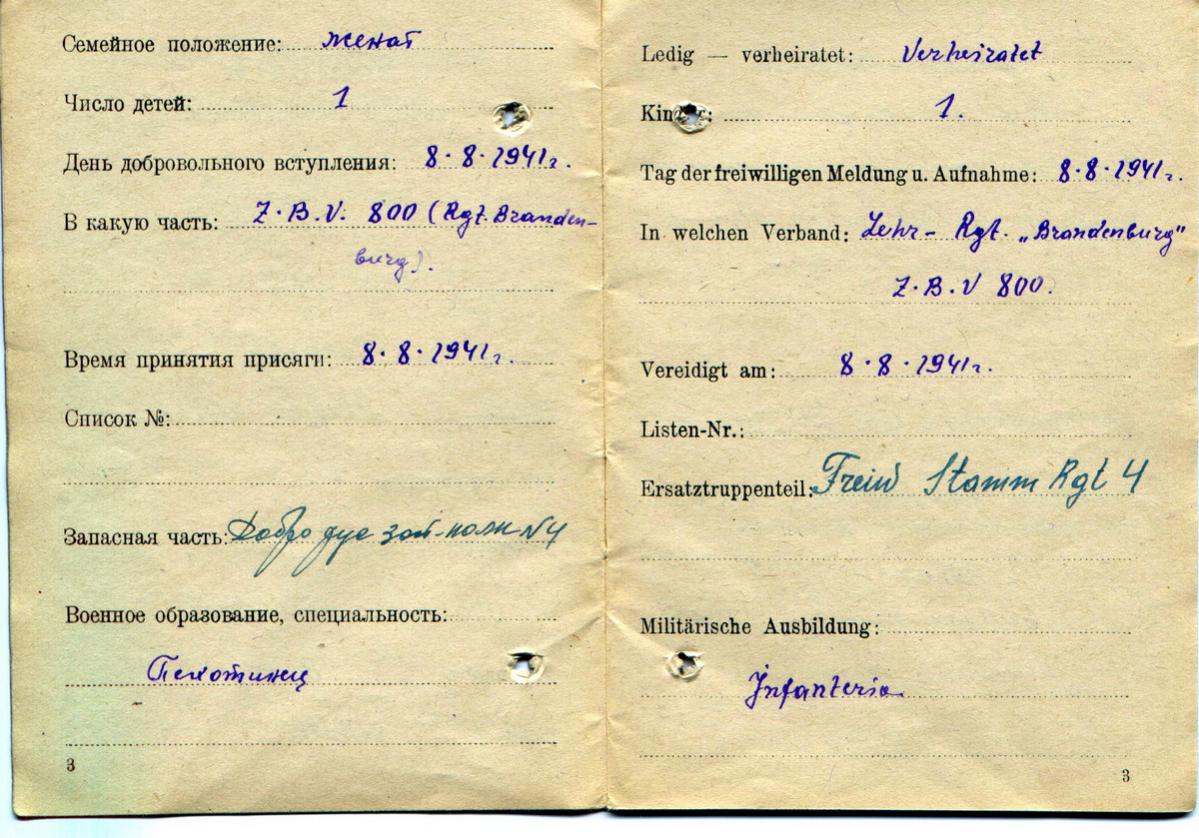 Семейное положение: женат
Число детей: 1
День добровольного вступления: 8.8.1941г.
В какую часть: Z.B.V. 800 (Rgt. Branden-
burg).
Время принятия присяги: 8.8.1941г.
Список №:
Запасная часть: Добро зап-полк N4
Военное образование, специальность:
Пехотинец
3
Ledig — verheiratet: Verheiratet
Kinder: 1.
Tag der freiwilligen Meldung u. Aufnahme: 8.8.1941г.
In welchen Verband: Lehr- Rgt. „Brandenburg"
Z.B.V 800.
Vereidigt am: 8.8.1941г.
Listen-Nr.:
Ersatztruppenteil: Freiw Stamm Rgt 4
Militärische Ausbildung:
Infanterie
3